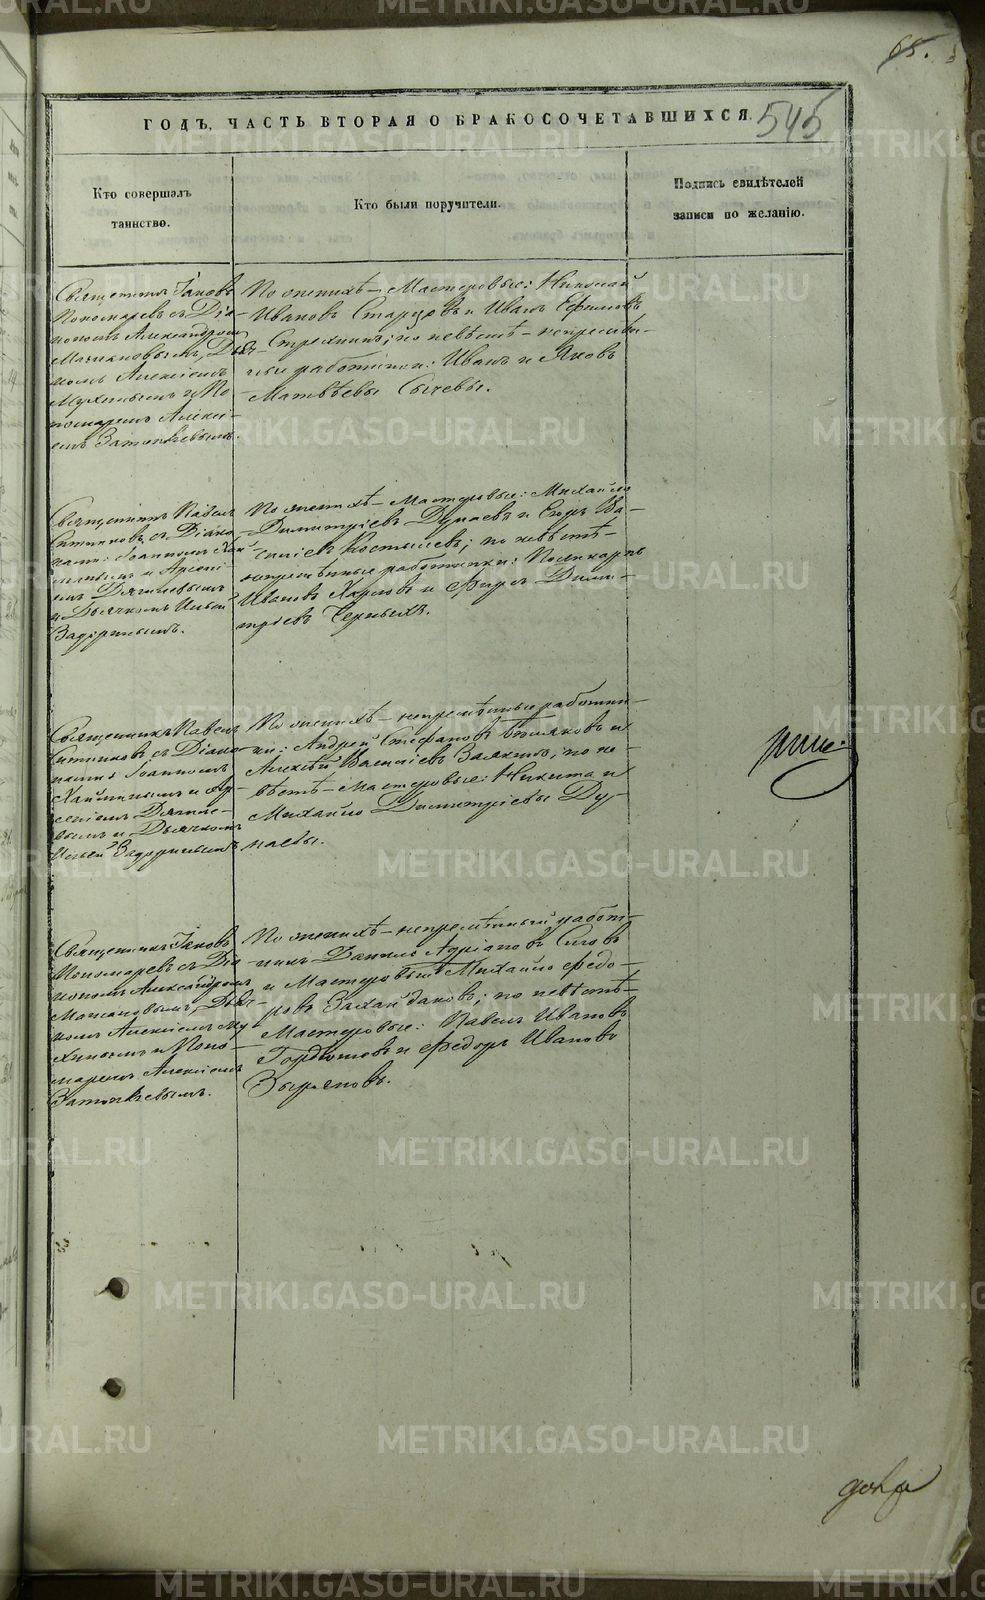 65.
545
ГОДЪ, ЧАСТЬ ВТОРАЯ О БРАКОСОЧЕТАВШИХСЯ.
Кто совершалъ
таинство.
Кто были поручители.
Подпись свидѣтелей
записи по желанію.
Священникъ Іаковъ
Пономаревъ съ Діа-
кономъ Александромъ
номъ Алексіемъ
Мухинымъ и По-
номаремъ Алексі-
емъ
По женихѣ – Мастеровые: Николай
Ивановъ Старцовъ и Иванъ Ефимовъ
по невѣстѣ – непремѣн-
ные работники: Иванъ и Яковъ
Матвѣевы Сычевы.
Священникъ Павелъ
Ситниковъ съ Діако-
нами: Іоанномъ
и Арсені-
емъ Дягилевымъ
и Дьячкомъ Ильей
Задоринымъ.
По женихѣ – Мастеровые: Михайло
Димитріевъ Дунаевъ и Егоръ Ва-
силіевъ Костылевъ; по невѣстѣ –
непремѣнные работники: Поликарпъ
Ивановъ и Фирсъ Дими-
тріевъ Черныхъ.
Священникъ Павелъ
Ситниковъ съ Діако-
нами Іоанномъ
и Ар-
сеніемъ Дягиле-
вымъ и Дьячкомъ
Ильей Задоринымъ
По женихѣ – непремѣнные работни-
ки: Андрей Стефановъ Бѣляковъ и
Алексѣй Василіевъ по не-
вѣстѣ – Мастеровые: Никита и
Михайло Димитріевы Ду-
наевы.
Священникъ Іаковъ
Пономаревъ съ Діа-
кономъ Александромъ
комъ Алексіемъ Му-
хинымъ и Поно-
маремъ Алексіемъ
По женихѣ – непремѣнный работ-
никъ Данилъ Адріановъ Сиговъ
и Мастеровый Михайло Федо-
ровъ по невѣстѣ –
Мастеровые: Павелъ Ивановъ
и Федоръ Ивановъ
Зыряновъ.
METRIKI.GASO-URAL.RU